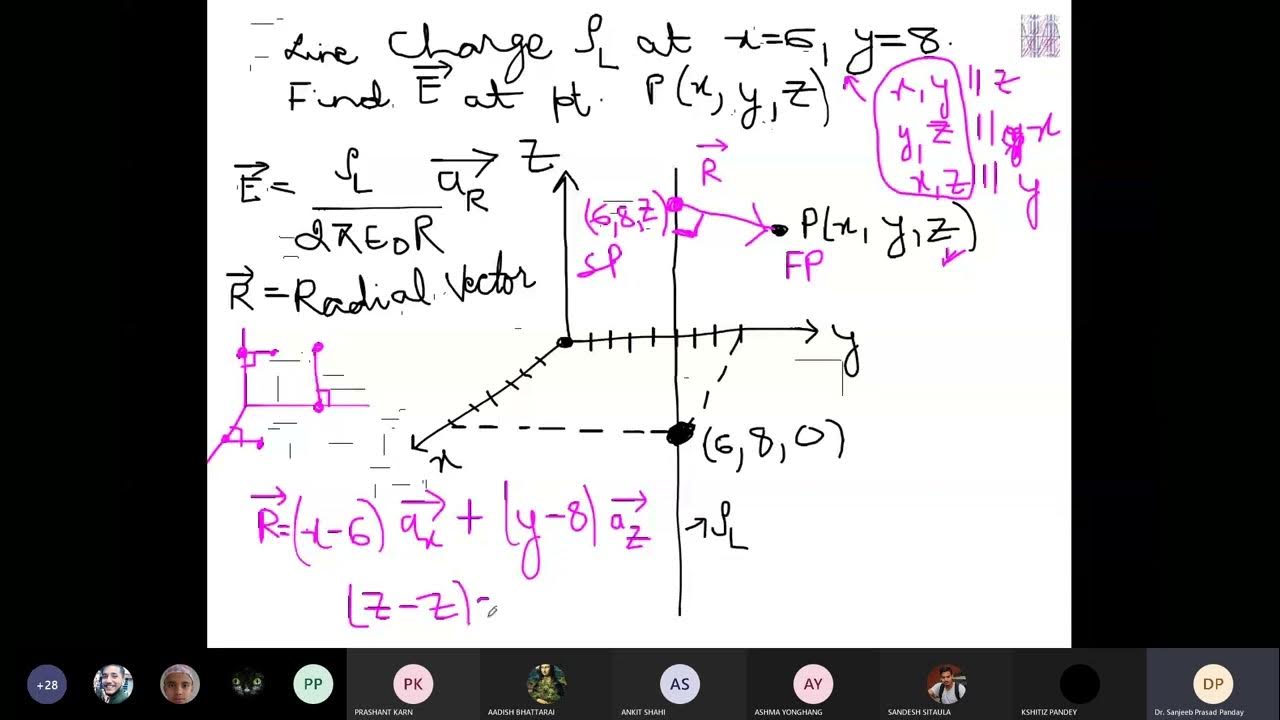 Line Charge ρL at x=6, y=8.
Find E⃗ at pt. P(x, y, z)
x, y || z
y, z || x
x, z || y
E⃗ = ρL / 2πε0R a⃗R
R⃗ = Radial Vector
Z
R⃗
(6,8,z)
SP
P(x, y, z)
FP
y
x
(6, 8, 0)
→ρL
R⃗=(x-6) a⃗x + (y-8) a⃗z
(z-z)=
+28
PP
PK
AS
AY
DP
PRASHANT KARN
AADISH BHATTARAI
ANKIT SHAHI
ASHMA YONGHANG
SANDESH SITAULA
KSHITIZ PANDEY
Dr. Sanjeeb Prasad Panday